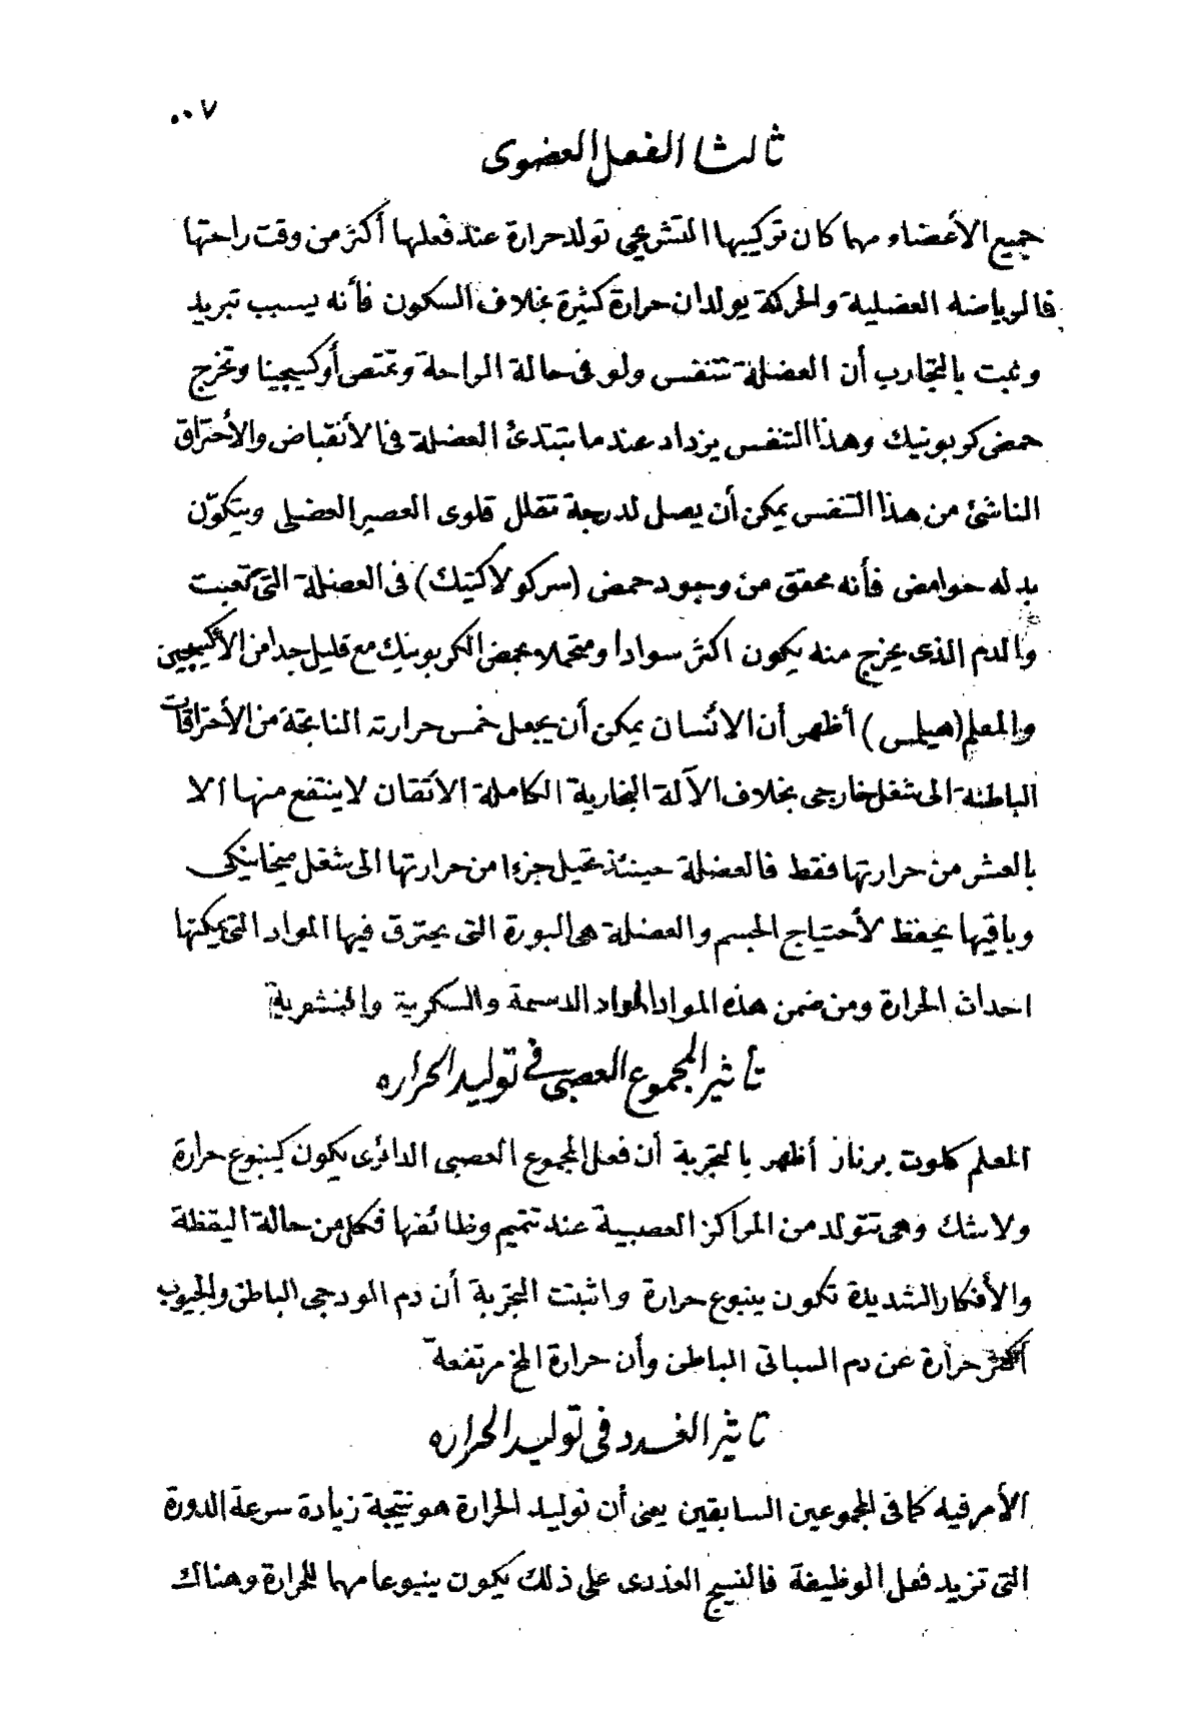 ٠٠٧
ثالثا الفعل العضوى
جميع الأعضاء مهما كان تركيبها التشرعيحى تولد حرارة عند فعلها أكثر من وقت راحتها
فالرياضه العضلية والحركة يولدان حرارة كثيرة بخلاف السكون فأنه يسبب تبريد
وثبت بالتجارب أن العضلة تتنفس ولو فى حالة الراحة وتمتص أوكسيجينا وتخرج
حمض كربونيك وهذا التنفس يزداد عند ما تبتدئ العضلة فى الأنقباض والأحتراق
الناشئ من هذا التنفس يمكن أن يصل لدرجة تقلل قلوى العصير العضلى ويتكوّن
بدله حوامض فأنه محقق من وجود حمض (سركولاكتيك) فى العضلة التى تعبت
والدم الذى يخرج منه يكون اكثر سوادا ومتحملا بحمض الكربونيك مع قليل جدا من الأكيجين
والمعلم (هيلمس) أظهر أن الأنسان يمكن أن يجعل خمس حرارته الناتجة من الأحتراقات
الباطنة الى شغل خارجى بخلاف الآلة البخارية الكاملة الأتقان لا ينتفع منها الا
بالعشر من حرارتها فقط فالعضلة حينئذ تحيل جزءا من حرارتها الى شغل ميخانيكى
وباقيها يحفظ لأحتياج الجسم والعضلة هى البورة التى يحترق فيها المواد التى يمكنها
احداث الحرارة ومن ضمن هذه المواد المواد الدسمة والسكرية والنشوية
تأثير المجموع العصبى فى توليد الحراره
المعلم كلوت برنار أظهر بالتجربة أن فعل المجموع العصبى الدائرى يكون كينبوع حرارة
ولا شك وهى تتولد من المراكز العصبية عند تتميم وظائفها فكل من حالة اليقظة
والأفكار الشديدة تكون ينبوع حرارة واثبتت التجربة أن دم الودجى الباطن والجيوب
أكثر حرارة عن دم السباتى الباطن وأن حرارة المخ مرتفعة
تاثير الغدد فى توليد الحراره
الأمر فيه كما فى المجموعين السابقين يعنى أن توليد الحرارة هو نتيجة زيادة سرعة الدورة
التى تزيد فعل الوظيفة فالنسيج الغذدى على ذلك يكون ينبوعا مهما للحرارة وهناك